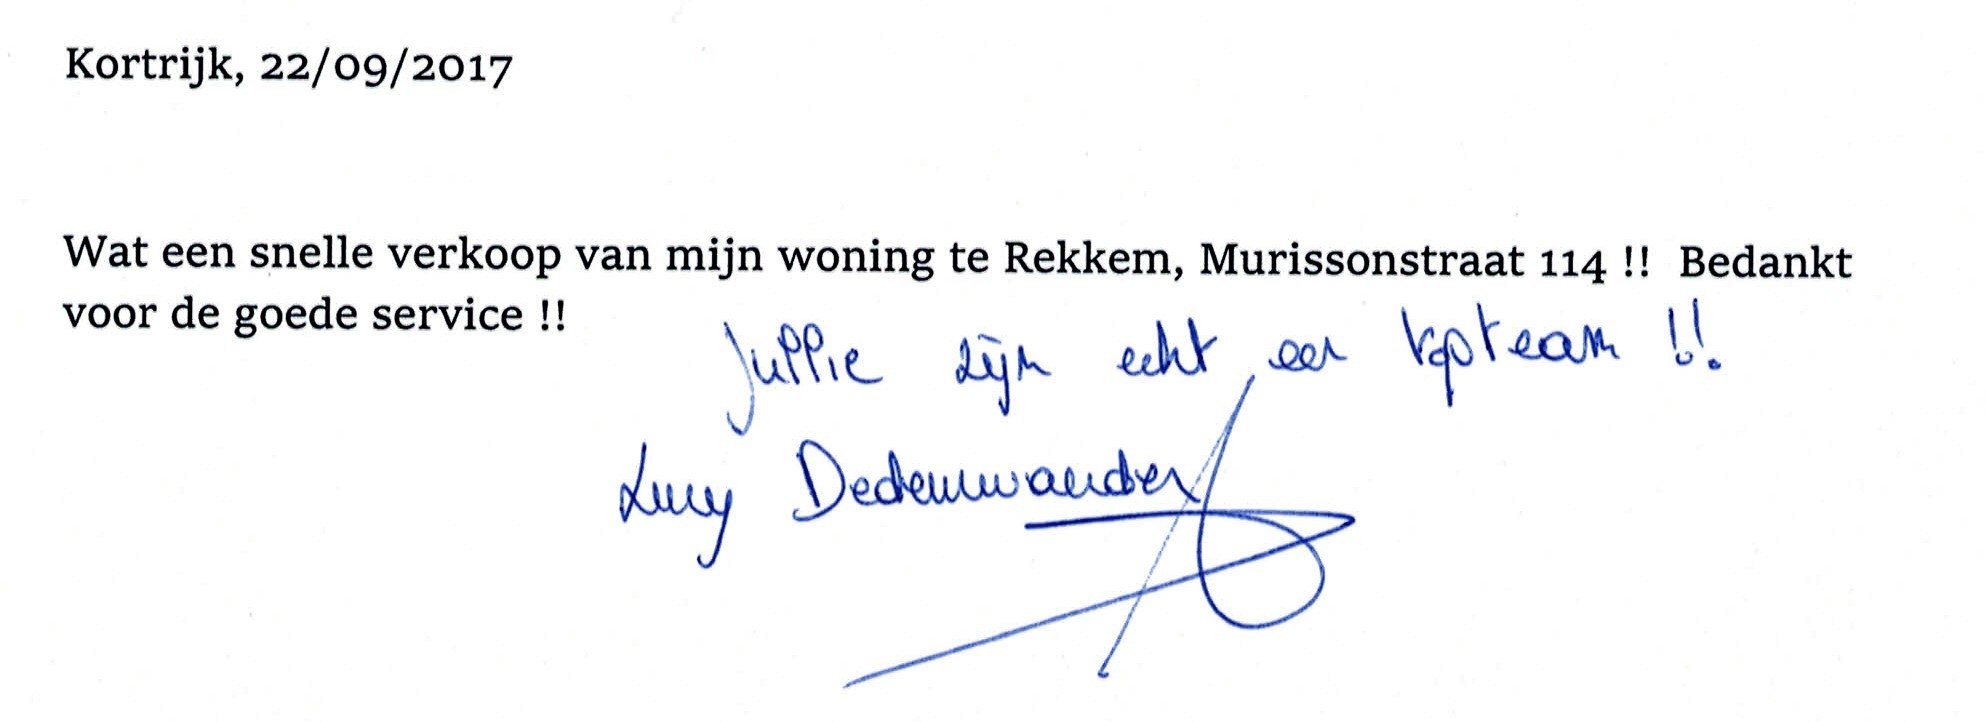 Kortrijk, 22/09/2017
Wat een snelle verkoop van mijn woning te Rekkem, Murissonstraat 114 !! Bedankt
voor de goede service !!
Jullie zijn echt een topteam !!
Lucy